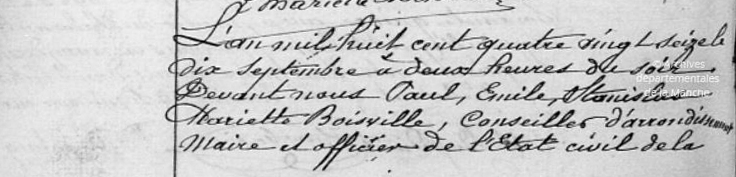 L'an mil huit cent quatre vingt seize le
dix Septembre à deux heures du soir
Devant nous Paul, Emile, Stanislas
Mariette Boisville, Conseiller d'arrondissement
Maire et officier de l'Etat civil de la
Archives
départementales
de la Manche